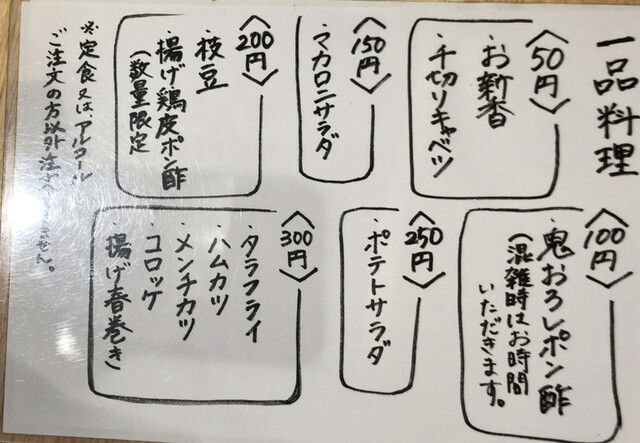 一品料理
〈50円〉
・お新香
・千切りキャベツ
〈100円〉
・鬼おろしポン酢
(混雑時はお時間
いただきます。
〈150円〉
・マカロニサラダ
〈200円〉
・枝豆
・揚げ鶏皮ポン酢
(数量限定)
〈250円〉
・ポテトサラダ
〈300円〉
・タラフライ
・ハムカツ
・メンチカツ
・コロッケ
・揚げ春巻き
※定食又は、アルコール
ご注文の方以外注文
ません。